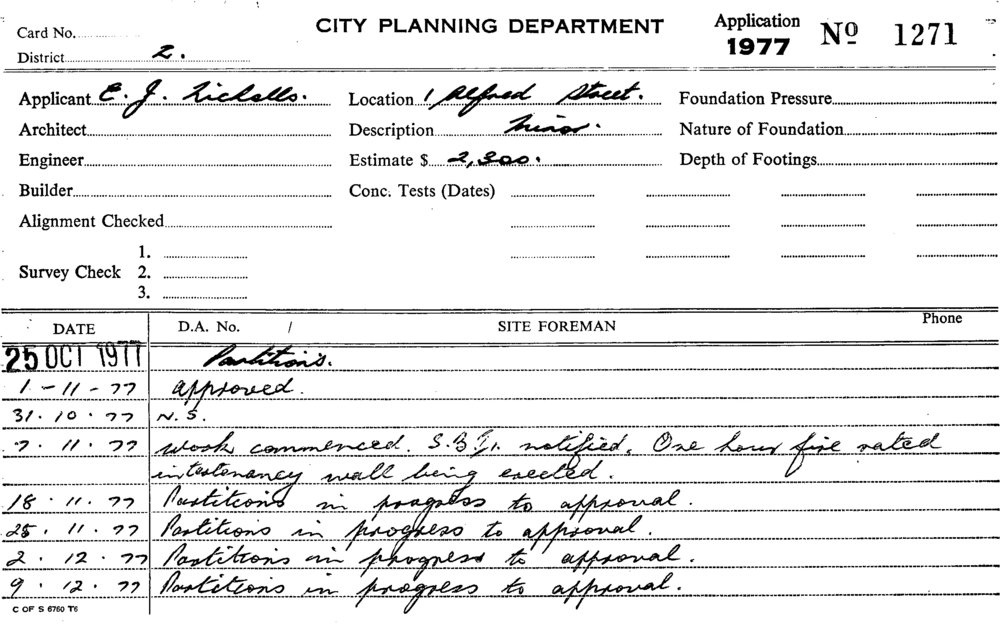 Card No.
CITY PLANNING DEPARTMENT
Application 1977 Nº 1271
District 2.
Applicant E. J. Nicholls. Location 1 Alfred Street. Foundation Pressure
Architect Description Minor. Nature of Foundation
Engineer Estimate $ 2,300. Depth of Footings
Builder Conc. Tests (Dates)
Alignment Checked
1.
Survey Check 2.
3.
DATE D.A. No. / SITE FOREMAN Phone
25 OCT 1977 Partitions.
1 - 11 - 77 approved.
31 . 10 . 77 N. S.
7 . 11 . 77 work commenced. notified. One hour fire rated
intertenancy wall being erected.
18 . 11 . 77 Partitions in progress to approval.
25 . 11 . 77 Partitions in progress to approval.
2 . 12 . 77 Partitions in progress to approval.
9 . 12 . 77 Partitions in progress to approval.
C OF S 6760 T6